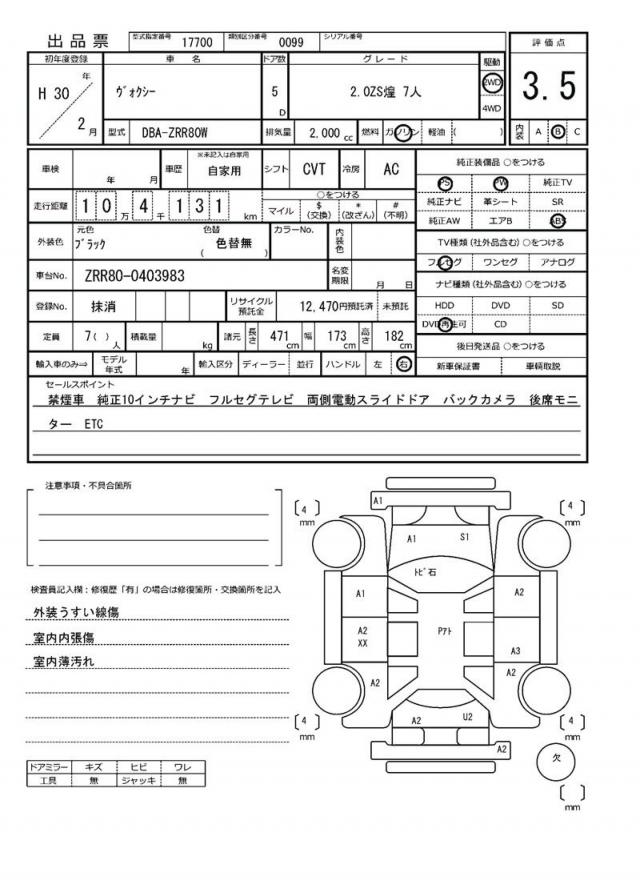 出品票 型式指定番号 17700 類別区分番号 0099 シリアル番号
初年度登録 車名 ドア数 グレード 駆動 評価点
H 30 年 2 月 ヴォクシー 5 D 2.0ZS煌 7人 2WD 4WD 3.5
型式 DBA-ZRR80W 排気量 2,000 cc 燃料 ガソリン 軽油 ( ) 内装 A B C
車検 年 月 車歴 ※未記入は自家用 自家用 シフト CVT 冷房 AC 純正装備品 ○をつける
PS PW 純正TV
走行距離 1 0 万 4 千 1 3 1 km ○をつける マイル $ (交換) * (改ざん) # (不明) 純正ナビ 革シート SR
純正AW エアB ABS
外装色 元色 ブラック 色替 ( 色替無 ) カラーNo. 内装色 TV種類 (社外品含む) ○をつける
フルセグ ワンセグ アナログ
車台No. ZRR80-0403983 名変期限 月 日 ナビ種類 (社外品含む) ○をつける
登録No. 抹消 リサイクル預託金 12,470円預託済 未預託 HDD DVD SD
DVD再生可 CD
定員 7( ) 人 積載量 kg 諸元 長さ 471 cm 幅 173 cm 高さ 182 cm 後日発送品 ○をつける
輸入車のみ⇒ モデル年式 年 輸入区分 ディーラー 並行 ハンドル 左 右 新車保証書 車輌取説
セールスポイント
禁煙車 純正10インチナビ フルセグテレビ 両側電動スライドドア バックカメラ 後席モニ
ター ETC
注意事項・不具合箇所
検査員記入欄：修復歴「有」の場合は修復箇所・交換箇所を記入
外装うすい線傷
室内内張傷
室内薄汚れ
ドアミラー キズ ヒビ ワレ
工具 無 ジャッキ 無
A1
4 mm 4 mm
A1 S1
トビ石
A1 A2
A2 XX Pｱﾄ A3
A2 A2
4 mm A2 U2 4 mm
A2
欠
mm